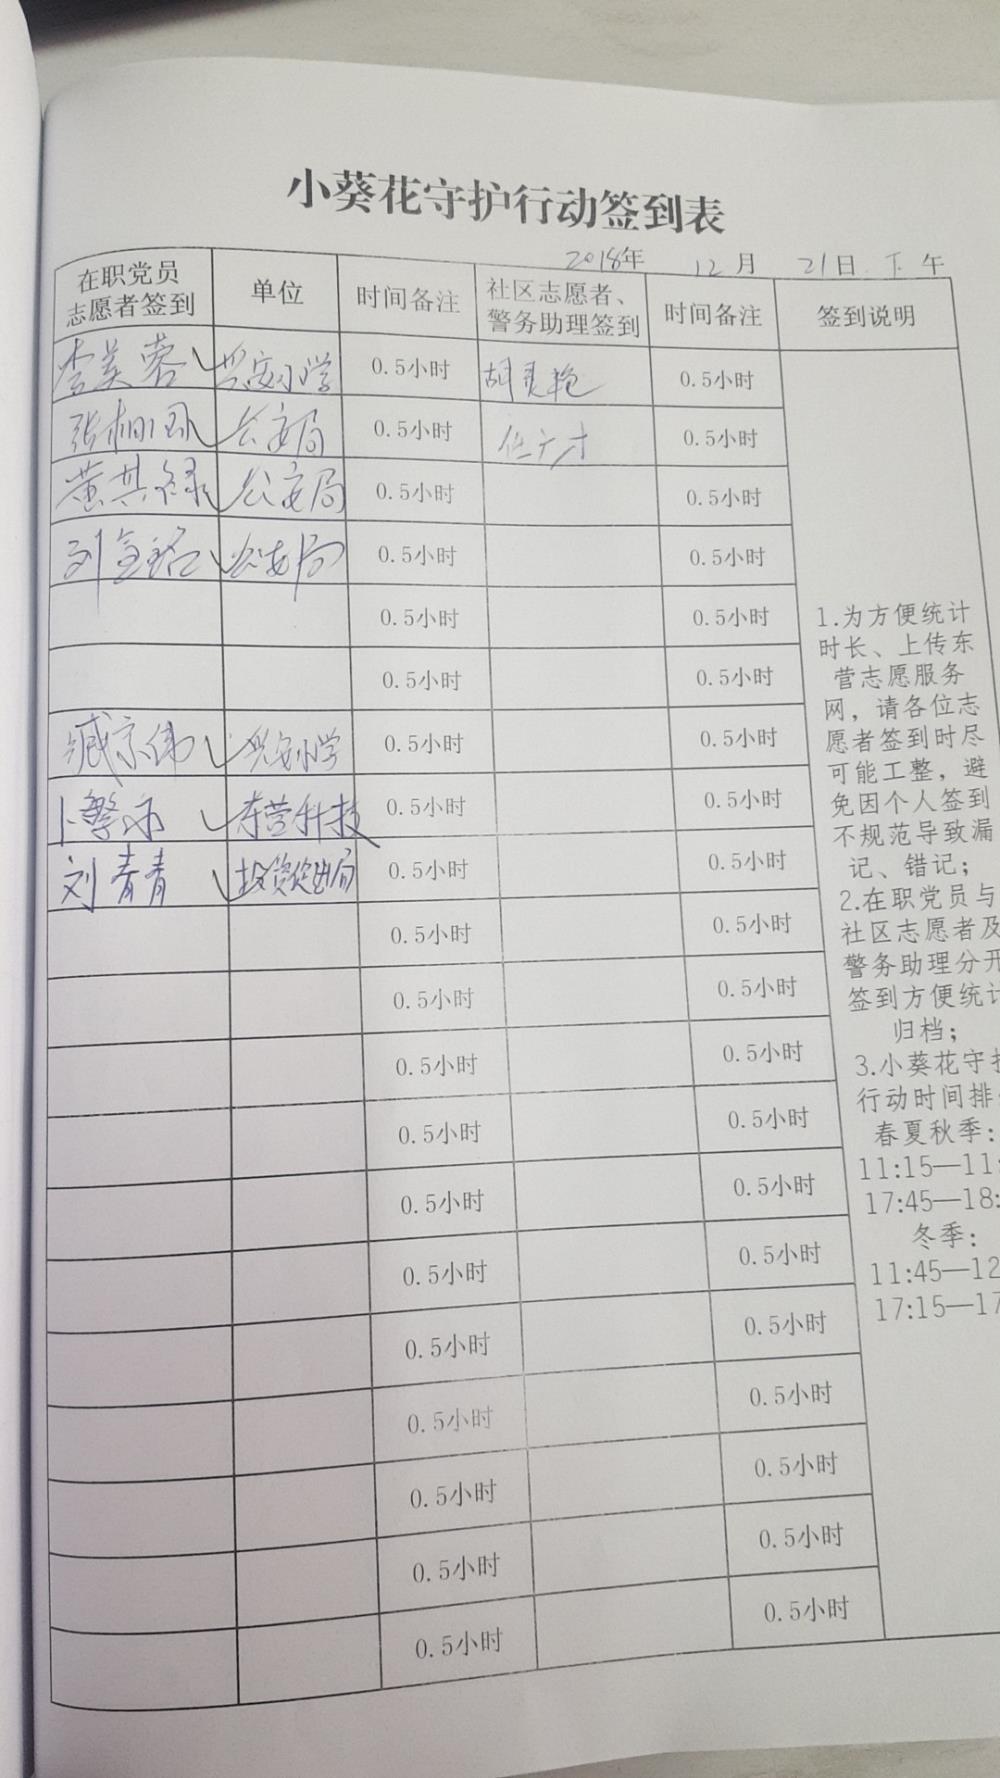 小葵花守护行动签到表
2018年 12月 21日 下午
在职党员志愿者签到 单位 时间备注 社区志愿者、警务助理签到 时间备注 签到说明
李美蓉 兴安小学 0.5小时 胡灵艳 0.5小时
张 公安局 0.5小时 任广才 0.5小时
黄其禄 公安局 0.5小时 0.5小时
刘金铭 公安局 0.5小时 0.5小时
0.5小时 0.5小时
0.5小时 0.5小时
臧京伟 兴安小学 0.5小时 0.5小时
卜 东营科技 0.5小时 0.5小时
刘青青 局 0.5小时 0.5小时
0.5小时 0.5小时
0.5小时 0.5小时
0.5小时 0.5小时
0.5小时 0.5小时
0.5小时 0.5小时
0.5小时 0.5小时
0.5小时 0.5小时
0.5小时 0.5小时
0.5小时 0.5小时
0.5小时 0.5小时
0.5小时 0.5小时
1.为方便统计
时长、上传东
营志愿服务
网，请各位志
愿者签到时尽
可能工整，避
免因个人签到
不规范导致漏
记、错记；
2.在职党员与
社区志愿者及
警务助理分开
签到方便统计
归档；
3.小葵花守护
行动时间排
春夏秋季：
11:15—11:
17:45—18:
冬季：
11:45—12
17:15—17